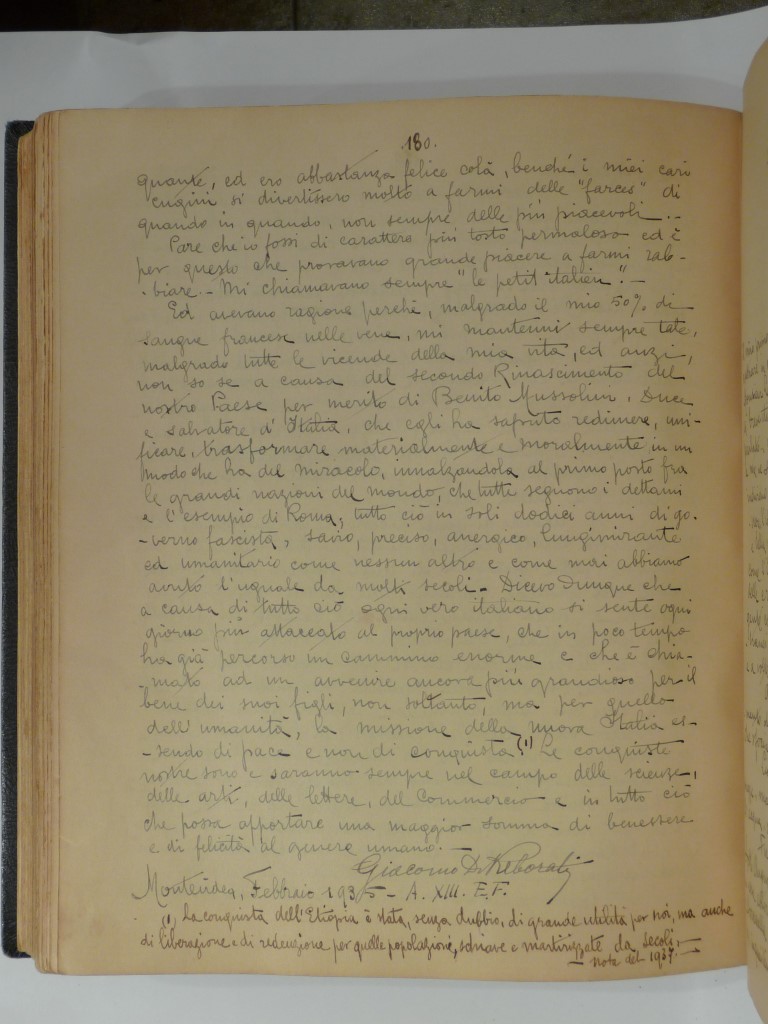 .180.
quante, ed ero abbastanza felice colà, benché i miei cari
cugini si divertissero molto a farmi delle "farces" di
quando in quando, non sempre delle più piacevoli.-
Pare che io fossi di carattere più tosto permaloso ed è
per questo che provavano grande piacere a farmi rab-
-biare.- Mi chiamavano sempre "le petit italien".-
Ed avevano ragione perchè, malgrado il mio 50% di
sangue francese nelle vene, mi mantenni sempre tale,
malgrado tutte le vicende della mia vita, ed anzi,
non so se a causa del secondo Rinascimento del
nostro Paese per merito di Benito Mussolini, Duce
e salvatore d'Italia, che egli ha saputo redimere, uni-
ficare, trasformare materialmente e moralmente in un
modo che ha del miracolo, innalzandola al primo posto fra
le grandi nazioni del mondo, che tutte seguono i dettami
e l'esempio di Roma, tutto ciò in soli dodici anni di go-
-verno fascista, savio, preciso, energico, lungimirante
ed umanitario come nessun altro e come mai abbiamo
avuto l'uguale da molti secoli.- Dicevo dunque che
a causa di tutto ciò ogni vero italiano si sente ogni
giorno più attaccato al proprio paese, che in poco tempo
ha già percorso un cammino enorme e che è chia-
-mato ad un avvenire ancora più grandioso per il
bene dei suoi figli, non soltanto, ma per quello
dell'umanità, la missione della nuova Italia es-
-sendo di pace e non di conquista.(1) Le conquiste
nostre sono e saranno sempre nel campo delle scienze,
delle arti, delle lettere, del commercio e in tutto ciò
che possa apportare una maggior somma di benessere
e di felicità al genere umano.-
Giacomo D. Reborati
Montevideo, Febbraio 1935 - A. XIII. E.F.
(1) La conquista dell'Etiopia è stata, senza dubbio, di grande utilità per noi, ma anche
di liberazione e di redenzione per quelle popolazioni, schiave e martirizzate da secoli.-
nota del 1937.-